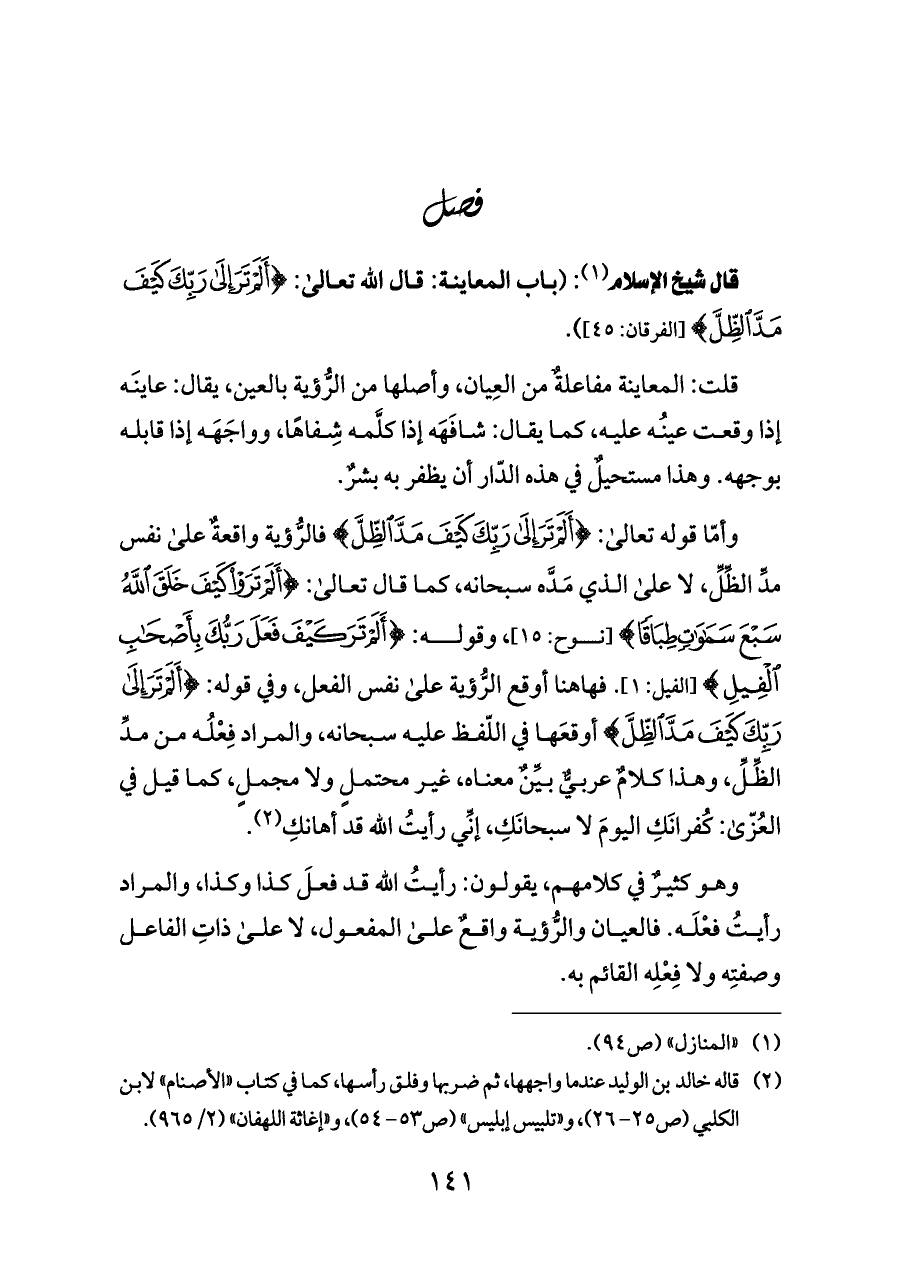 فصل
قال شيخ الإسلام(١): (باب المعاينة: قال الله تعالىٰ: ﴿أَلَمْ تَرَ إِلَىٰ رَبِّكَ كَيْفَ
مَدَّ ٱلظِّلَّ﴾ [الفرقان: ٤٥]).
قلت: المعاينة مفاعلةٌ من العِيان، وأصلها من الرُّؤية بالعين، يقال: عاينَه
إذا وقعت عينُه عليه، كما يقال: شافَهَه إذا كلَّمه شِفاهًا، وواجَهَه إذا قابله
بوجهه. وهذا مستحيلٌ في هذه الدّار أن يظفر به بشرٌ.
وأمّا قوله تعالىٰ: ﴿أَلَمْ تَرَ إِلَىٰ رَبِّكَ كَيْفَ مَدَّ ٱلظِّلَّ﴾ فالرُّؤية واقعةٌ علىٰ نفس
مدِّ الظِّلِّ، لا علىٰ الذي مَدَّه سبحانه، كما قال تعالىٰ: ﴿أَلَمْ تَرَوْا۟ كَيْفَ خَلَقَ ٱللَّهُ
سَبْعَ سَمَٰوَٰتٍ طِبَاقًا﴾ [نوح: ١٥]، وقوله: ﴿أَلَمْ تَرَ كَيْفَ فَعَلَ رَبُّكَ بِأَصْحَٰبِ
ٱلْفِيلِ﴾ [الفيل: ١]. فهاهنا أوقع الرُّؤية علىٰ نفس الفعل، وفي قوله: ﴿أَلَمْ تَرَ إِلَىٰ
رَبِّكَ كَيْفَ مَدَّ ٱلظِّلَّ﴾ أوقعَها في اللّفظ عليه سبحانه، والمراد فِعْلُه من مدِّ
الظِّلِّ، وهذا كلامٌ عربيٌّ بيِّنٌ معناه، غير محتملٍ ولا مجملٍ، كما قيل في
العُزّىٰ: كُفرانَكِ اليومَ لا سبحانَكِ، إنِّي رأيتُ الله قد أهانكِ(٢).
وهو كثيرٌ في كلامهم، يقولون: رأيتُ الله قد فعلَ كذا وكذا، والمراد
رأيتُ فعْلَه. فالعيان والرُّؤية واقعٌ علىٰ المفعول، لا علىٰ ذاتِ الفاعل
وصفتِه ولا فِعْلِه القائم به.
(١) «المنازل» (ص٩٤).
(٢) قاله خالد بن الوليد عندما واجهها، ثم ضربها وفلق رأسها، كما في كتاب «الأصنام» لابن
الكلبي (ص٢٥-٢٦)، و«تلبيس إبليس» (ص٥٣-٥٤)، و«إغاثة اللهفان» (٢/ ٩٦٥).
١٤١